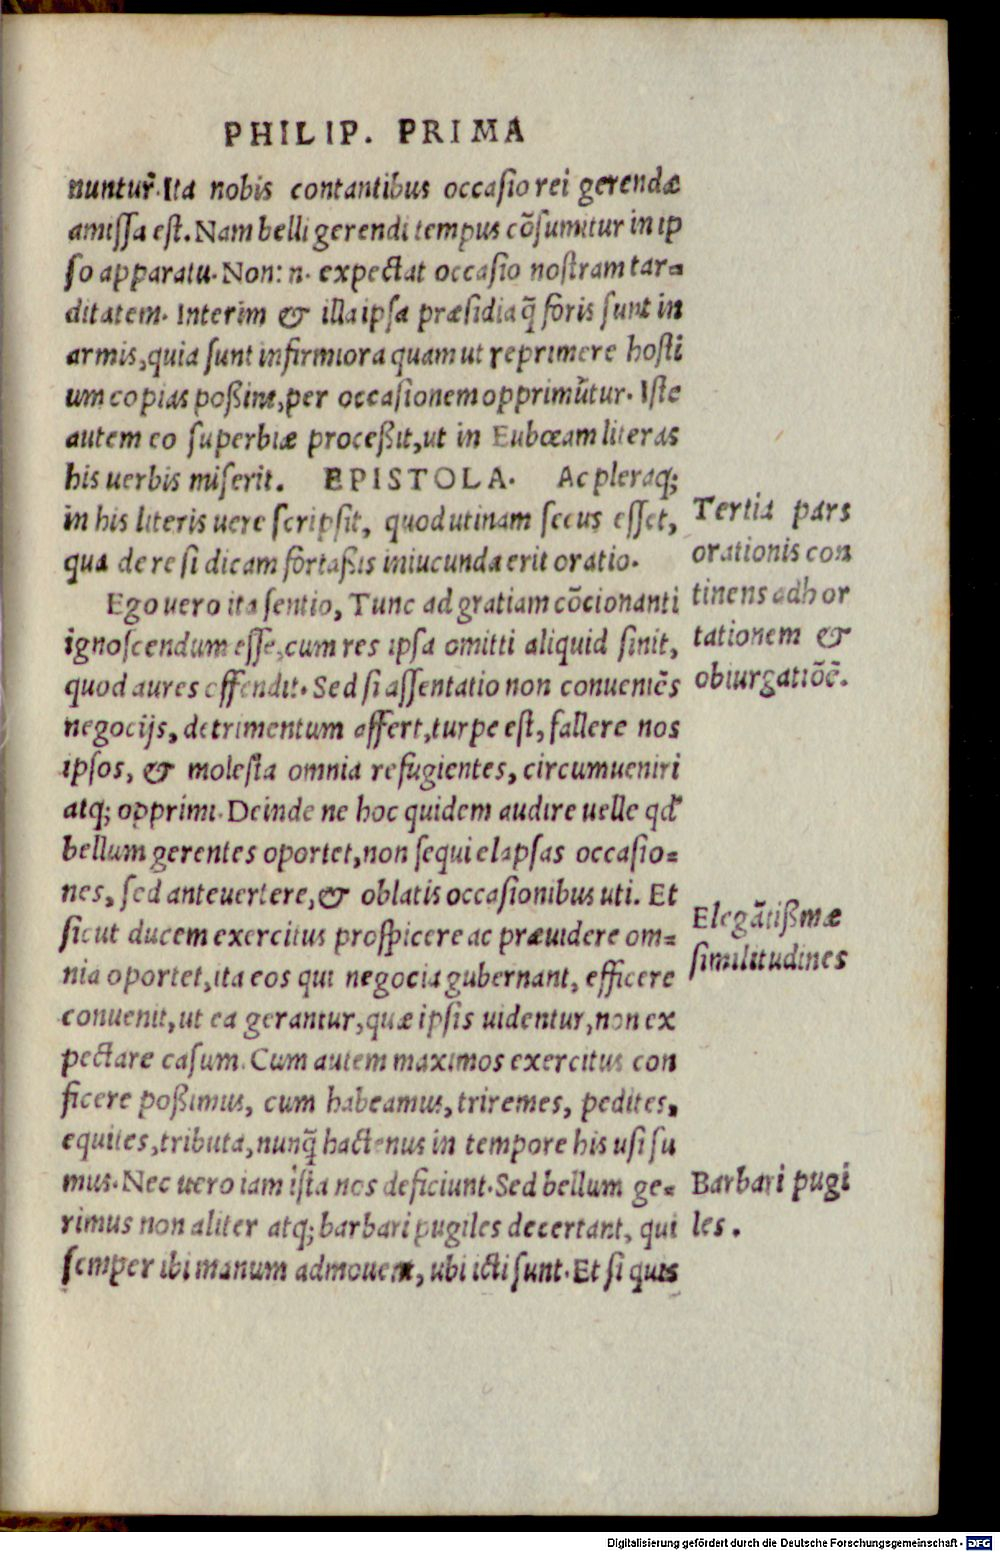 PHILIP. PRIMA
nuntur. Ita nobis contantibus occasio rei gerendæ
amissa est. Nam belli gerendi tempus cõsumitur in ip
so apparatu. Non: n. expectat occasio nostram tar=
ditatem. Interim & illa ipsa præsidia q̃ foris sunt in
armis, quia sunt infirmiora quam ut reprimere hosti
um copias poßint, per occasionem opprimũtur. Iste
autem eo superbiæ proceßit, ut in Eubœam literas
his uerbis miserit. EPISTOLA. Ac pleraq;
in his literis uere scripsit, quod utinam secus esset,
qua de re si dicam fortaßis iniucunda erit oratio.
Tertia pars
orationis con
tinens adhor
tationem &
obiurgatiõẽ.
Ego uero ita sentio, Tunc ad gratiam cõcionanti
ignoscendum esse, cum res ipsa omitti aliquid sinit,
quod aures offendit. Sed si assentatio non conueniẽs
negocijs, detrimentum affert, turpe est, fallere nos
ipsos, & molesta omnia refugientes, circumueniri
atq; opprimi. Deinde ne hoc quidem audire uelle qd'
bellum gerentes oportet, non sequi elapsas occasio=
nes, sed anteuertere, & oblatis occasionibus uti. Et
sicut ducem exercitus prospicere ac præuidere om=
nia oportet, ita eos qui negocia gubernant, efficere
conuenit, ut ea gerantur, quæ ipsis uidentur, non ex
pectare casum. Cum autem maximos exercitus con
ficere poßimus, cum habeamus, triremes, pedites,
equites, tributa, nunq̃ hactenus in tempore his usi su
mus. Nec uero iam ista nos deficiunt. Sed bellum ge=
rimus non aliter atq; barbari pugiles decertant, qui
semper ibi manum admouent, ubi icti sunt. Et si quis
Elegãtißmæ
similitudines
Barbari pugi
les.
Digitalisierung gefördert durch die Deutsche Forschungsgemeinschaft - DFG